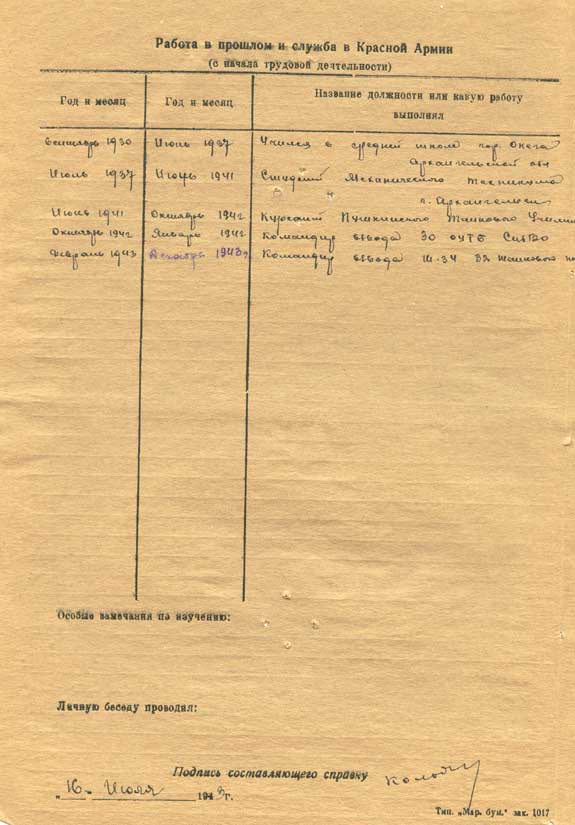 Работа в прошлом и служба в Красной Армии
(с начала трудовой деятельности)
Год и месяц Год и месяц Название должности или какую работу
выполнял
Сентябрь 1930 Июнь 1937 Учился в средней школе гор. Онега
Архангельской обл
Июль 1937 Июнь 1941 Студент Механического техникума
г. Архангельск
Июнь 1941 Октябрь 1942 Курсант Пушкинского Танкового Училищ
Октябрь 1942 Январь 1942 Командир взвода 30 оутб СибВО
Февраль 1943 Декабрь 1943г Командир взвода Т-34 танкового
Особые замечания по изучению:
Личную беседу проводил:
Подпись составляющего справку
„16“ Июля 1943г.
Тип. „Мар. бум.“ зак. 1017